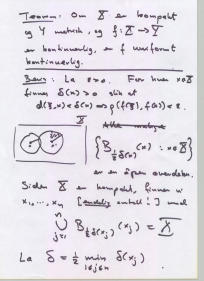 Teorem: Om X er kompakt
og Y metrisk, og f: X → Y
er kontinuerlig, er f uniformt
kontinuerlig.
Bevis: La ε>0. For hver x∈X
finnes δ(x)>0 slik at
d(ξ,x)<δ(x) ⇒ ρ(f(ξ),f(x))<ε.
X
{B_{½δ(x)}(x) : x∈X}
er en åpen overdekn.
Siden X er kompakt, finnes vi
x₁,…,xₙ [endelig antall!] med
⋃_{j=1}^{n} B_{½δ(x_j)}(x_j) = X
La δ = ½ min_{1≤j≤n} δ(x_j)